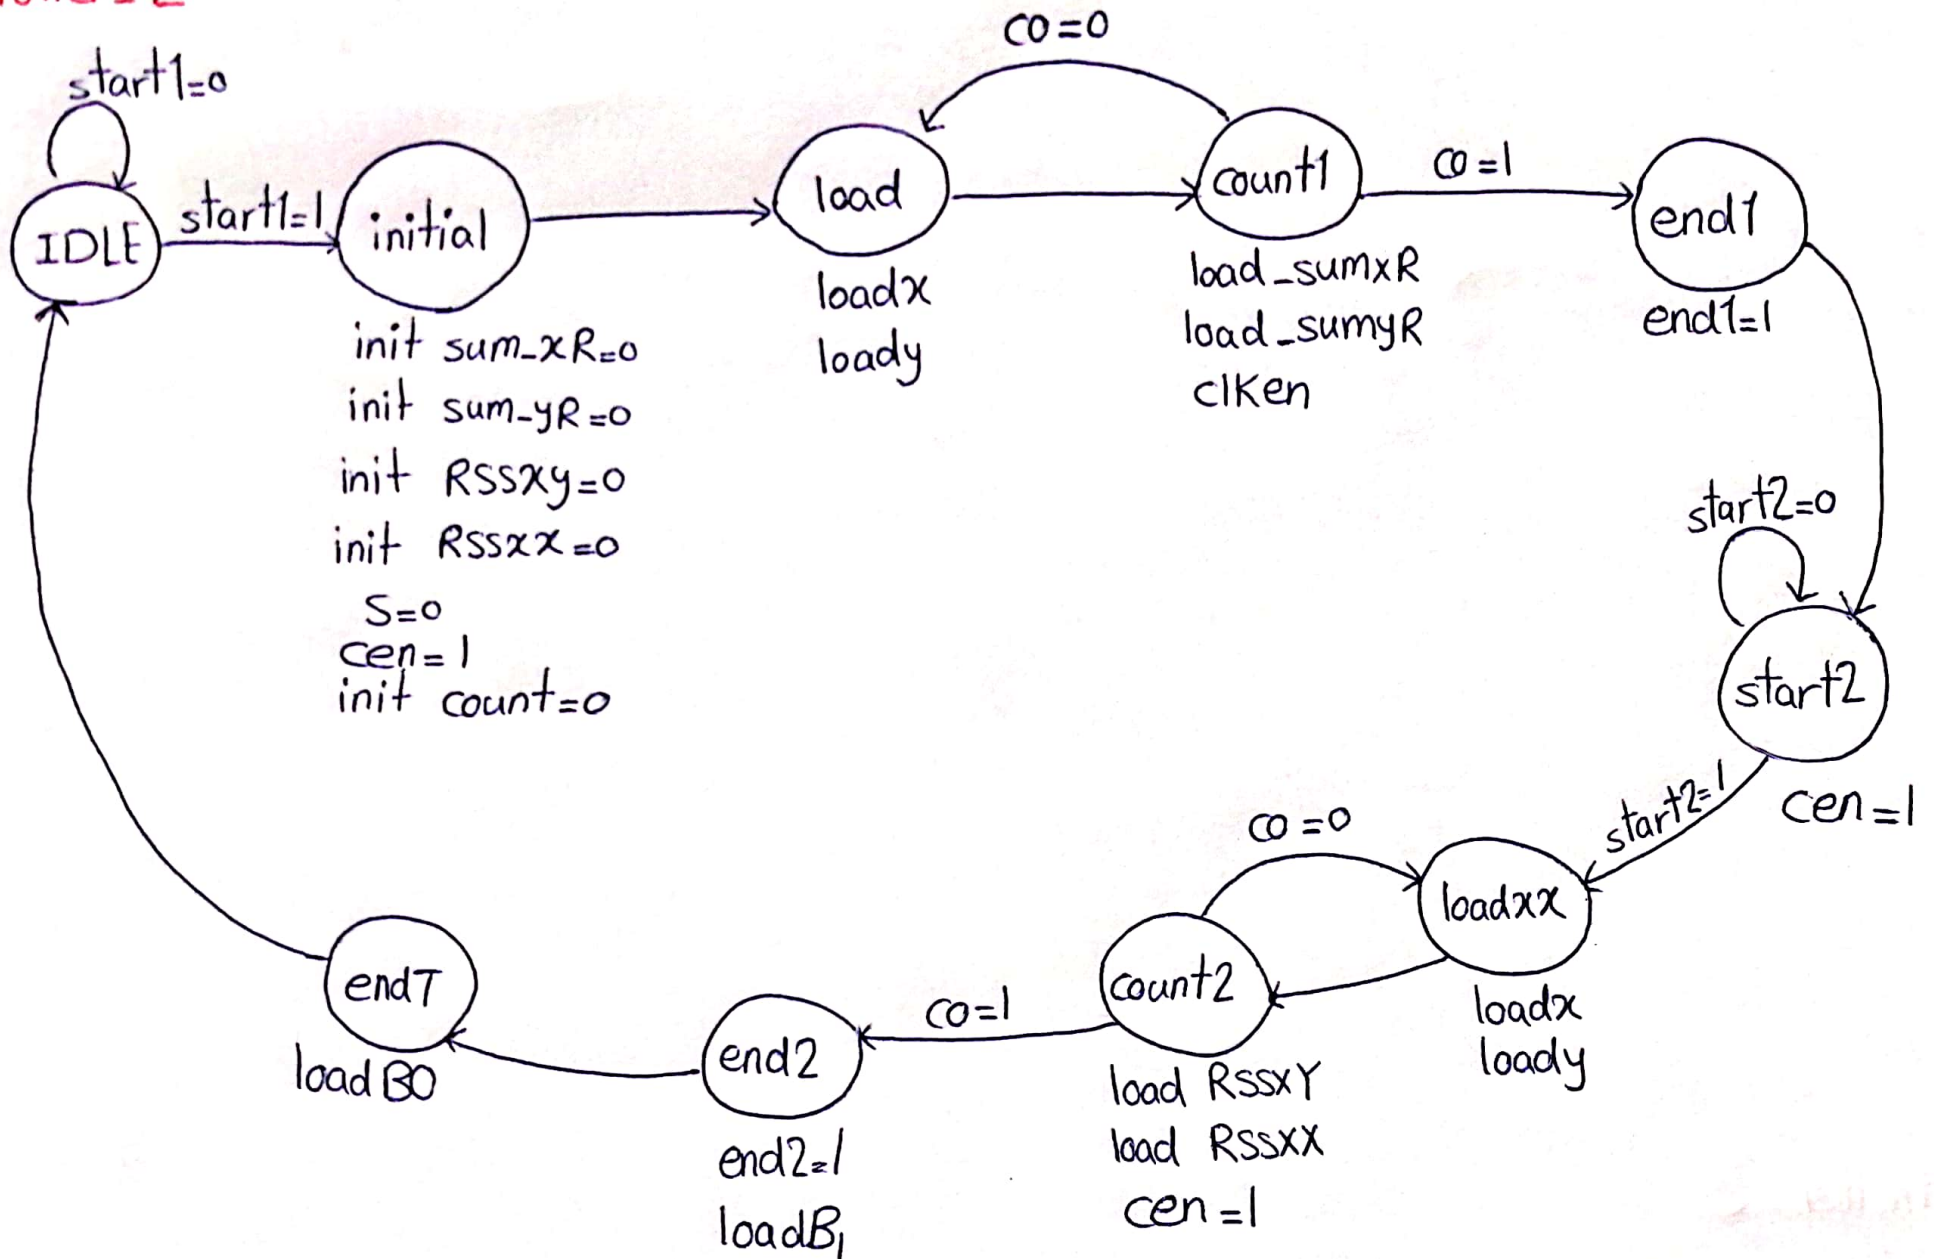 co=0
start1=0
IDLE
start1=1
initial
init sum_xR=0
init sum_yR=0
init RSSxy=0
init RSSxx=0
S=0
cen=1
init count=0
load
loadx
loady
count1
load_sumxR
load_sumyR
clKen
co=1
end1
end1=1
start2=0
start2
cen=1
start2=1
loadxx
loadx
loady
co=0
count2
load RSSXY
load RSSXX
cen=1
co=1
end2
end2=1
loadB1
endT
load B0